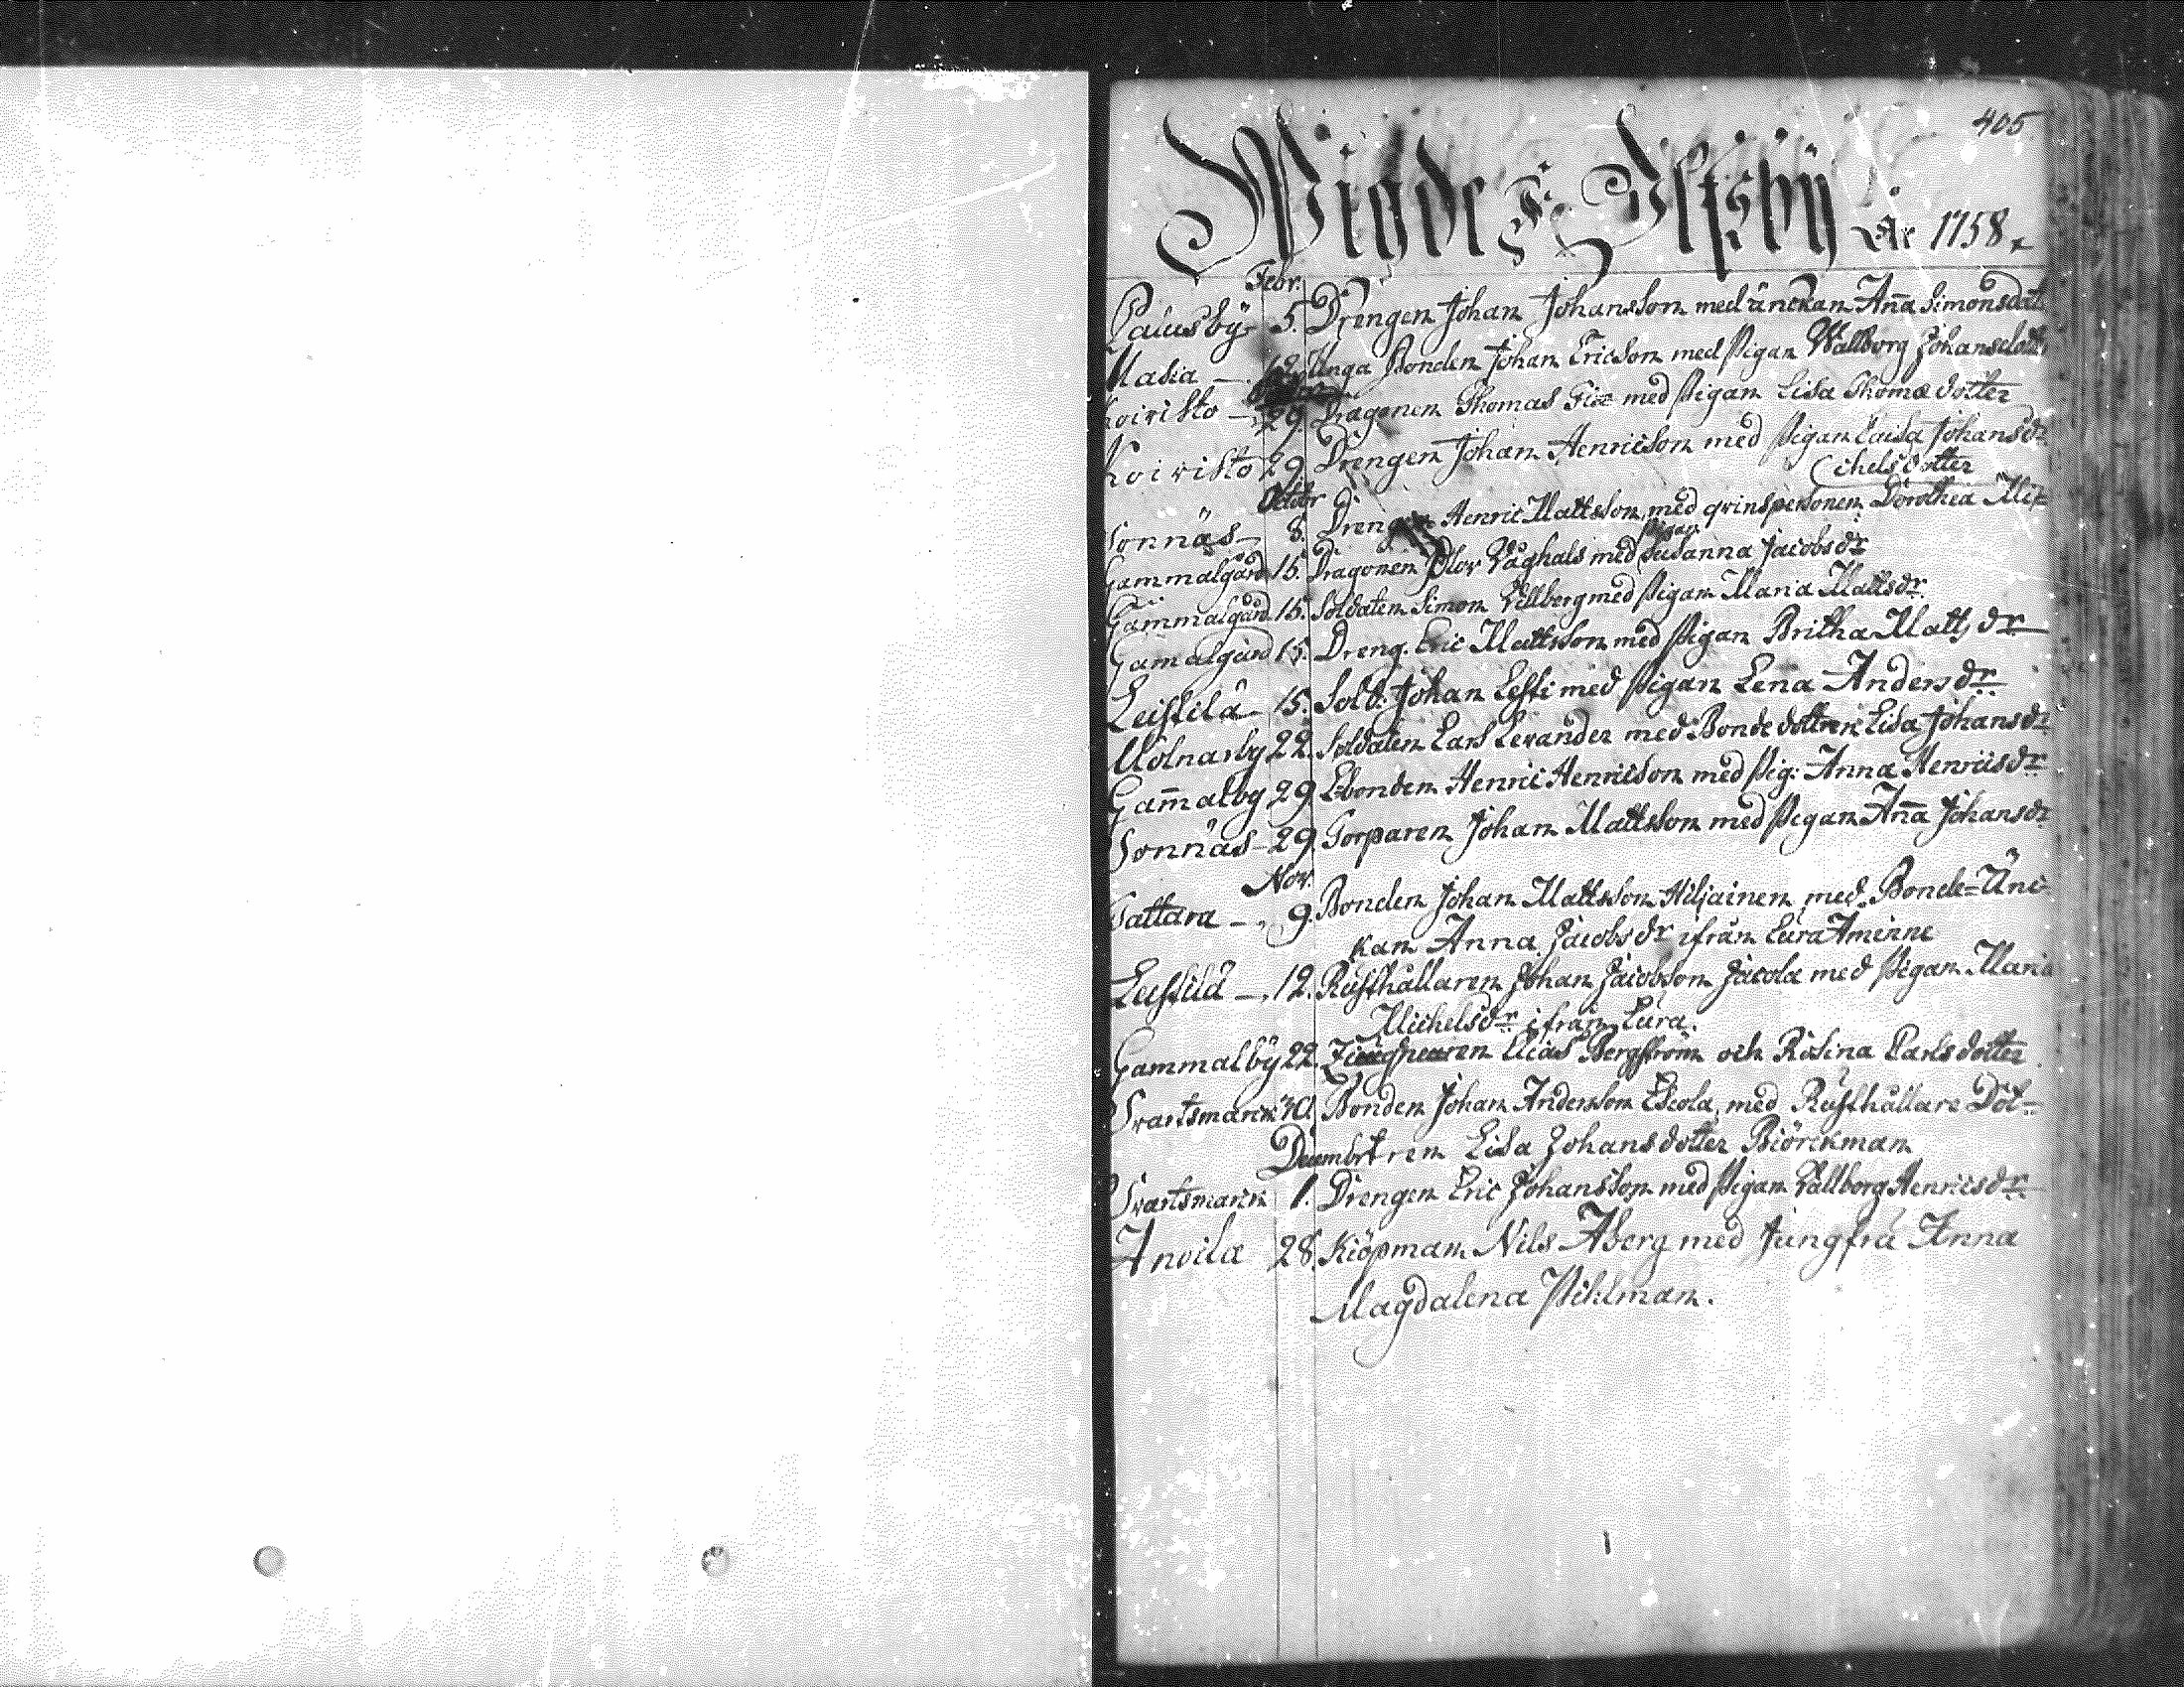 405
Wigde i Ulfsby År 1758.
Febr.
Påwusby 5. Drengen Johan Johansson med änckan Aña Simonsdat
Masia 12. Unga Bonden Johan Ericsson med Pigan Wallborg Johansdott
Koivisto 29. Dragonen Thomas Fix med Pigan Lisa Thomædotter
Koivisto 29 Drengen Johan Henricsson med Pigan Caisa Johansdr
(chelsdotter
Octobr
Sonnäs 8. Drengen Henric Mattsson med qvinspersonen Dorothea Mi=
Pigan
Gammalgård 15. Dragonen Olov Våghals med Susanna Jacobsdr
Gammalgård 15. Soldaten Simon Villberg med Pigan Maria Mattsdr.
Gamalgård 15. Dreng. Eric Mattsson med Pigan Britha Mattsdr
Leistilä 15. Sold. Johan Lesti med Pigan Lena Andersdr.
Molnarby 22. Soldaten Lars Levander med Bondedottren Lisa Johansdr
Gam̄alby 29 Ebonden Henric Henricsson med Pig: Anna Henricsdr
Sonnäs 29. Torparen Johan Mattsson med Pigan Aña Johansdr
Nov.
Tattara 9. Bonden Johan Mattsson Hiljainen med Bonde=Änc
kan Anna Jacobsdr ifrån Eura Åminne
Leistilä 12. Rusthållaren Johan Jacobsson Jacola med Pigan Maria
Michelsdr ifrån Eura.
Gammalby 22. Elias Bergström och Risina Carlsdotter
Svartsmarck 30. Bonden Johan Andersson Escola, med Rusthållare Dot=
Decembr tren Lisa Johansdotter Biörckman
Svartsmarck 1. Drengen Eric Johansson med Pigan Vallborg Henricsdr
Anvila 28. Kiöpman Nils Åberg med Jungfru Anna
Magdalena Pihlman.